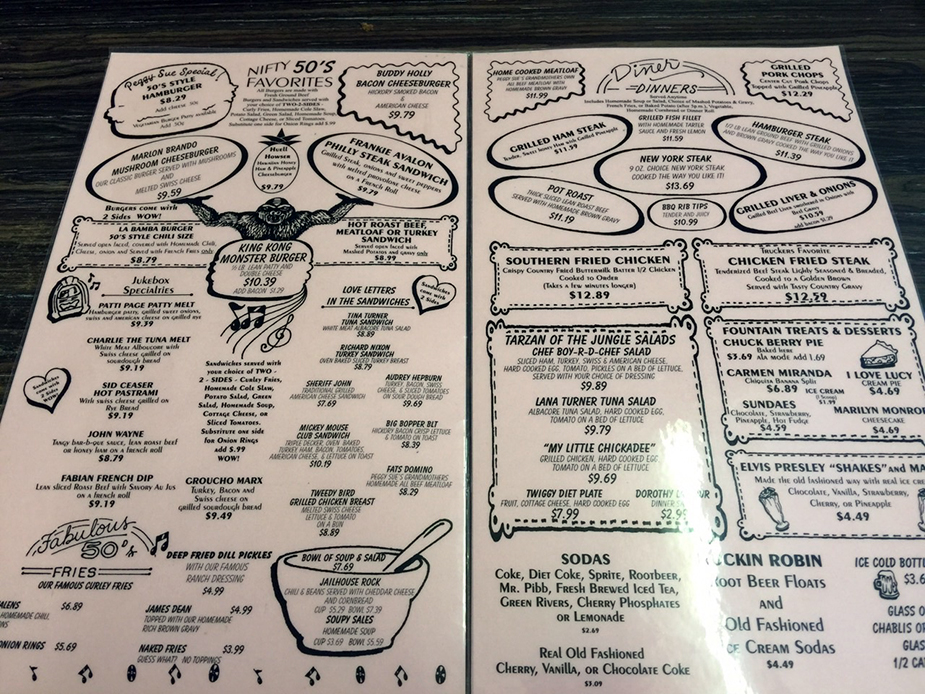 Peggy Sue Special!
50'S STYLE
HAMBURGER
$8.29
Add cheese 50c
Add 50c
NIFTY 50'S
FAVORITES
All Burgers are made with
Fresh Ground Beef
Burgers and Sandwiches served with
your choice of TWO-2-SIDES -
Homemade Cole Slaw,
Potato Salad, Green Salad, Homemade Soup,
Cottage Cheese, or Sliced Tomatoes.
Substitute one side for Onion Rings add $.99
BUDDY HOLLY
BACON CHEESEBURGER
HICKORY SMOKED BACON
&
AMERICAN CHEESE
$9.79
MARLON BRANDO
MUSHROOM CHEESEBURGER
OUR CLASSIC BURGER SERVED WITH MUSHROOMS
AND
MELTED SWISS CHEESE
$9.59
Huell
Howser
Hawaiian Honey
Ham & Pineapple
Cheeseburger
$9.79
FRANKIE AVALON
PHILLY STEAK SANDWICH
Grilled Steak, onions and sweet peppers
with melted provolone cheese
on a French Roll
$9.79
BURGERS COME WITH
2 SIDES WOW!
LA BAMBA BURGER
50'S STYLE CHILI SIZE
Served open faced, covered with Homemade Chili,
Cheese, onion and Served with French Fries only
$8.79
KING KONG
MONSTER BURGER
½ LB. LEAN PATTY AND
DOUBLE CHEESE
$10.39
ADD BACON $1.29
HOT ROAST BEEF,
MEATLOAF OR TURKEY
SANDWICH
Served open faced with
Mashed Potatoes and gravy only
$8.99
JUKEBOX
SPECIALTIES
PATTI PAGE PATTY MELT
Hamburger patty, grilled sweet onions,
swiss and american cheese on grilled rye
$9.39
CHARLIE THE TUNA MELT
White Meat Albcoure with
Swiss cheese grilled on
sourdough bread
$9.19
Sandwiches
come with
2 Sides
WOW!
SID CEASER
HOT PASTRAMI
With swiss cheese grilled on
Rye Bread
$9.19
JOHN WAYNE
Tangy bar-b-que sauce, lean roast beef
or honey ham on a french roll
$8.79
FABIAN FRENCH DIP
Lean sliced Roast Beef with Savory Au Jus
on a french roll
$9.19
GROUCHO MARX
Turkey, Bacon and
Swiss cheese on
grilled sourdough bread
$9.49
Sandwiches served with
your choice of TWO -
2 - SIDES - Curley Fries,
Homemade Cole Slaw,
Potato Salad, Green
Salad, Homemade Soup,
Cottage Cheese, or
Sliced Tomatoes.
Substitute one side
for Onion Rings
add $.99
WOW!
LOVE LETTERS
IN THE SANDWICHES
Sandwiches
come with
2 Sides
TINA TURNER
TUNA SANDWICH
WHITE MEAT ALBACORE TUNA SALAD
$8.89
RICHARD NIXON
TURKEY SANDWICH
OVEN BAKED SLICED TURKEY BREAST
$8.79
SHERIFF JOHN
A TRADITIONAL GRILLED
AMERICAN CHEESE SANDWICH
$7.69
AUDREY HEPBURN
TURKEY, BACON, SWISS
CHEESE, & SLICED TOMATOES
ON SOUR DOUGH BREAD
$9.69
MICKEY MOUSE
CLUB SANDWICH
TRIPLE DECKER, OVEN BAKED
TURKEY, HAM, BACON, TOMATOES,
AMERICAN CHEESE, & LETTUCE ON TOAST
$10.19
BIG BOPPER BLT
HICKORY BACON CRISP LETTUCE
& TOMATO ON TOAST
$8.39
FATS DOMINO
PEGGY SUE'S GRANDMOTHERS
HOMEMADE ALL BEEF MEATLOAF
$8.29
TWEEDY BIRD
GRILLED CHICKEN BREAST
MELTED SWISS CHEESE
LETTUCE &
TOMATO
ON A BUN
$8.89
Fabulous
50's
FRIES
OUR FAMOUS CURLEY FRIES
ALENS $6.89
HOMEMADE CHILI,
ONS
ONION RINGS $5.69
DEEP FRIED DILL PICKLES
WITH OUR FAMOUS
RANCH DRESSING
$4.99
JAMES DEAN $4.99
TOPPED WITH OUR HOMEMADE
RICH BROWN GRAVY
NAKED FRIES $3.99
GUESS WHAT? NO TOPPINGS
BOWL OF SOUP & SALAD
$7.69
JAILHOUSE ROCK
CHILI & BEANS SERVED WITH CHEDDAR CHEESE
AND CORNBREAD
CUP $5.29 BOWL $7.39
SOUPY SALES
HOMEMADE SOUP
CUP $3.69 BOWL $5.59
HOME COOKED MEATLOAF
PEGGY SUE'S GRANDMOTHERS OWN
ALL BEEF MEATLOAF WITH
HOMEMADE BROWN GRAVY
$11.99
Diner
DINNERS
Served Anytime
Includes Homemade Soup or Salad, Choice of Mashed Potatoes & Gravy,
French Fries, or Baked Potato (after 5p.m.), Vegetables,
Homemade Cornbread or Dinner Roll.
GRILLED
PORK CHOPS
Center Cut Pork Chops
Topped with Grilled Pineapple
$12.29
GRILLED HAM STEAK
Tender, Sweet Honey Ham with Grilled Pineapple
$11.59
GRILLED FISH FILLET
WITH HOMEMADE TARTER
SAUCE AND FRESH LEMON
$11.59
HAMBURGER STEAK
1/2 LB LEAN GROUND BEEF WITH GRILLED ONIONS
AND BROWN GRAVY COOKED THE WAY YOU LIKE IT
$11.39
NEW YORK STEAK
9 OZ. CHOICE NEW YORK STEAK
COOKED THE WAY YOU LIKE IT!
$13.69
POT ROAST
THICK SLICED LEAN ROAST BEEF
SERVED WITH HOMEMADE BROWN GRAVY
$11.19
BBQ RIB TIPS
TENDER AND JUICY
$10.99
GRILLED LIVER & ONIONS
Grilled Beef Liver smothered in Onions with
Red Gravy
$10.59
add bacon $1.29
SOUTHERN FRIED CHICKEN
Crispy Country Fried Buttermilk Batter 1/2 Chicken
Cooked to Order
(Takes a few minutes longer)
$12.89
TRUCKERS FAVORITE
CHICKEN FRIED STEAK
Tenderized Beef Steak Lighly Seasoned & Breaded,
Cooked to a Golden Brown
Served with Tasty Country Gravy
$12.59
TARZAN OF THE JUNGLE SALADS
CHEF BOY-R-D-CHEF SALAD
SLICED HAM, TURKEY, SWISS & AMERICAN CHEESE,
HARD COOKED EGG, TOMATO, PICKLES ON A BED OF LETTUCE,
SERVED WITH YOUR CHOICE OF DRESSING
$9.89
LANA TURNER TUNA SALAD
ALBACORE TUNA SALAD, HARD COOKED EGG,
TOMATO ON A BED OF LETTUCE
$9.79
"MY LITTLE CHICKADEE"
GRILLED CHICKEN, HARD COOKED EGG,
TOMATO ON A BED OF LETTUCE
$9.69
TWIGGY DIET PLATE
FRUIT, COTTAGE CHEESE, HARD COOKED EGG
$7.99
DOROTHY
DINNER
$2.99
FOUNTAIN TREATS & DESSERTS
CHUCK BERRY PIE
Baked here
$3.69 Ala Mode add 1.69
CARMEN MIRANDA
Chiquita Banana Split
$6.89
ICE CREAM
(1 Scoop)
$1.99
I LOVE LUCY
CREAM PIE
$4.69
SUNDAES
Chocolate, Strawberry,
Pineapple, Hot Fudge
$4.59
MARILYN MONRO
CHEESECAKE
$4.69
ELVIS PRESLEY "SHAKES" and MA
Made the old fashioned way with real ice cre
Chocolate, Vanilla, Strawberry,
Cherry, or Pineapple
$4.49
SODAS
Coke, Diet Coke, Sprite, Rootbeer,
Mr. Pibb, Fresh Brewed Iced Tea,
Green Rivers, Cherry Phosphates
or Lemonade
$2.69
Real Old Fashioned
Cherry, Vanilla, or Chocolate Coke
$3.09
CKIN ROBIN
oot Beer Floats
and
Old Fashioned
ce Cream Sodas
$4.49
ICE COLD BOTTLE
$3.6
GLASS O
CHABLIS O
GLAS
1/2 CA